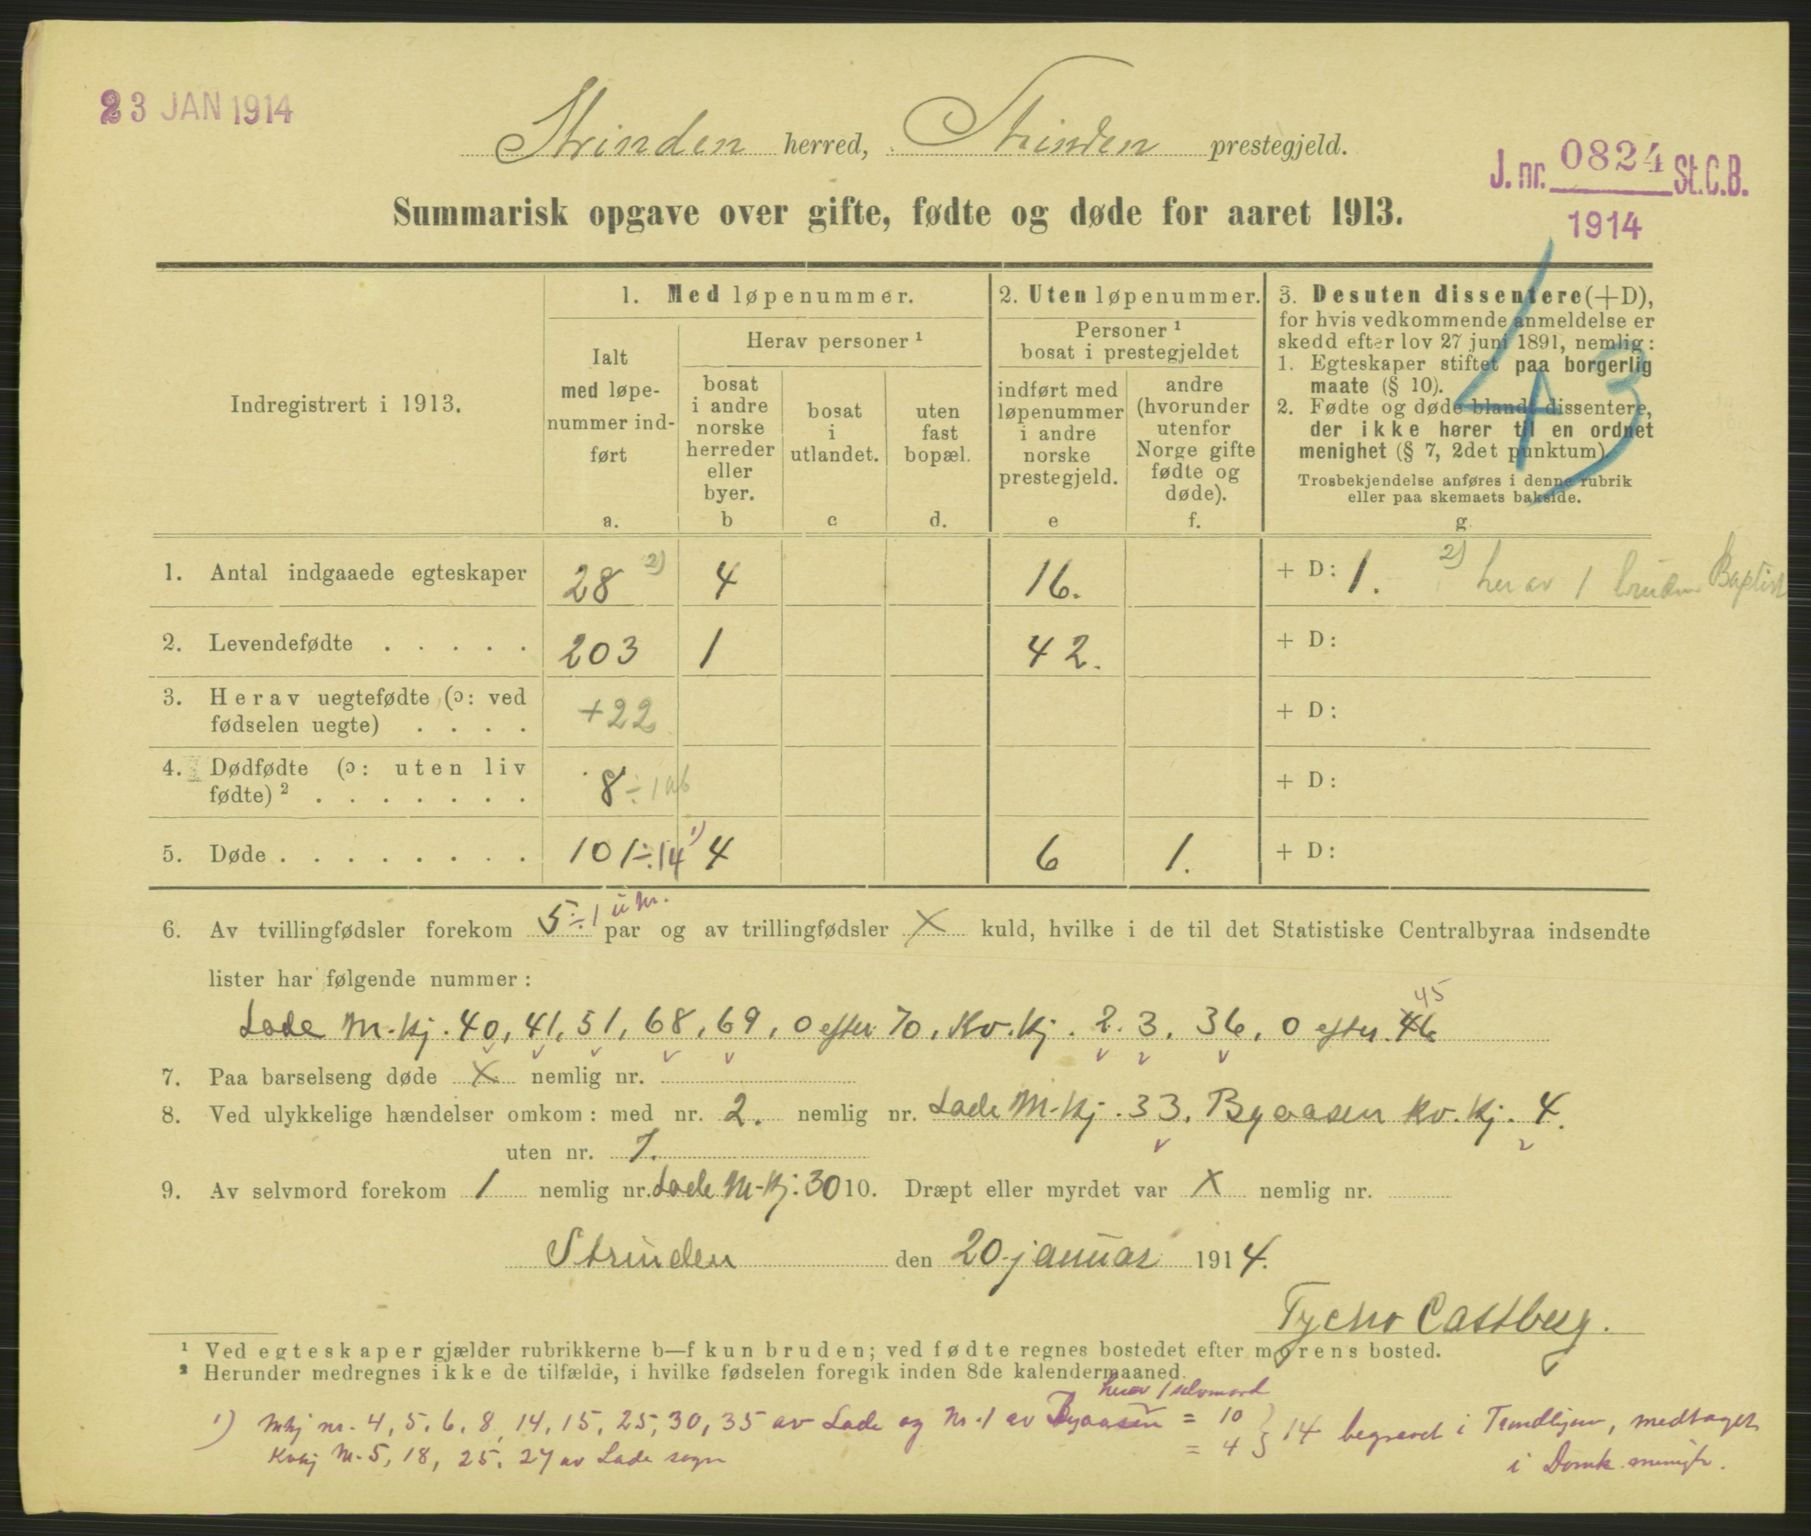 23 JAN 1914
Strinden herred, Strinden prestegjeld.
J. nr. 0824 St.C.B.
1914
Summarisk opgave over gifte, fødte og døde for aaret 1913.
43
Indregistrert i 1913.
1. Med løpenummer.
Ialt med løpenummer indført
a.
Herav personer ¹
bosat i andre norske herreder eller byer.
b
bosat i utlandet.
c
uten fast bopæl.
d.
2. Uten løpenummer.
Personer ¹ bosat i prestegjeldet
indført med løpenummer i andre norske prestegjeld.
e
andre (hvorunder utenfor Norge gifte fødte og døde).
f.
3. Desuten dissentere (+D),
for hvis vedkommende anmeldelse er
skedd efter lov 27 juni 1891, nemlig:
1. Egteskaper stiftet paa borgerlig
maate (§ 10).
2. Fødte og døde blandt dissentere,
der ikke hører til en ordnet
menighet (§ 7, 2det punktum).
Trosbekjendelse anføres i denne rubrik
eller paa skemaets bakside.
g.
1. Antal indgaaede egteskaper 28 2) 4 16. + D: 1. 2) herav 1 brudm Baptist
2. Levendefødte . . . . . 203 1 42. + D:
3. Herav uegtefødte (ɔ: ved
fødselen uegte) . . . . +22 + D:
4. Dødfødte (ɔ: uten liv
fødte) ² . . . . . . . 8 ÷ 1 ab + D:
5. Døde . . . . . . . . 101 ÷ 14 1) 4 6 1. + D:
6. Av tvillingfødsler forekom 5 ÷ 1 u nr. par og av trillingfødsler X kuld, hvilke i de til det Statistiske Centralbyraa indsendte
lister har følgende nummer:
45
Lade M-kj. 40, 41, 51, 68, 69, 0 efter 70, Kv. kj. 2. 3. 36, 0 efter 46
7. Paa barselseng døde X nemlig nr.
8. Ved ulykkelige hændelser omkom: med nr. 2. nemlig nr. Lade M-kj. 33. Byaasen Kv. kj. 4.
uten nr. 7.
9. Av selvmord forekom 1 nemlig nr. Lade M-kj. 30 10. Dræpt eller myrdet var X nemlig nr.
Strinden den 20 januar 1914.
Tycho Castberg.
¹ Ved egteskaper gjælder rubrikkerne b—f kun bruden; ved fødte regnes bostedet efter morens bosted.
² Herunder medregnes ikke de tilfælde, i hvilke fødselen foregik inden 8de kalendermaaned.
herav 1 selvmord
1) Mkj nr. 4, 5, 6, 8, 14, 15, 25, 30, 35 av Lade og Nr. 1 av Byaasen = 10 } 14 begravet i Trondhjem, medtaget
Kvkj Nr. 5, 18, 25, 27 av Lade sogn = 4 i Domk. menigh.